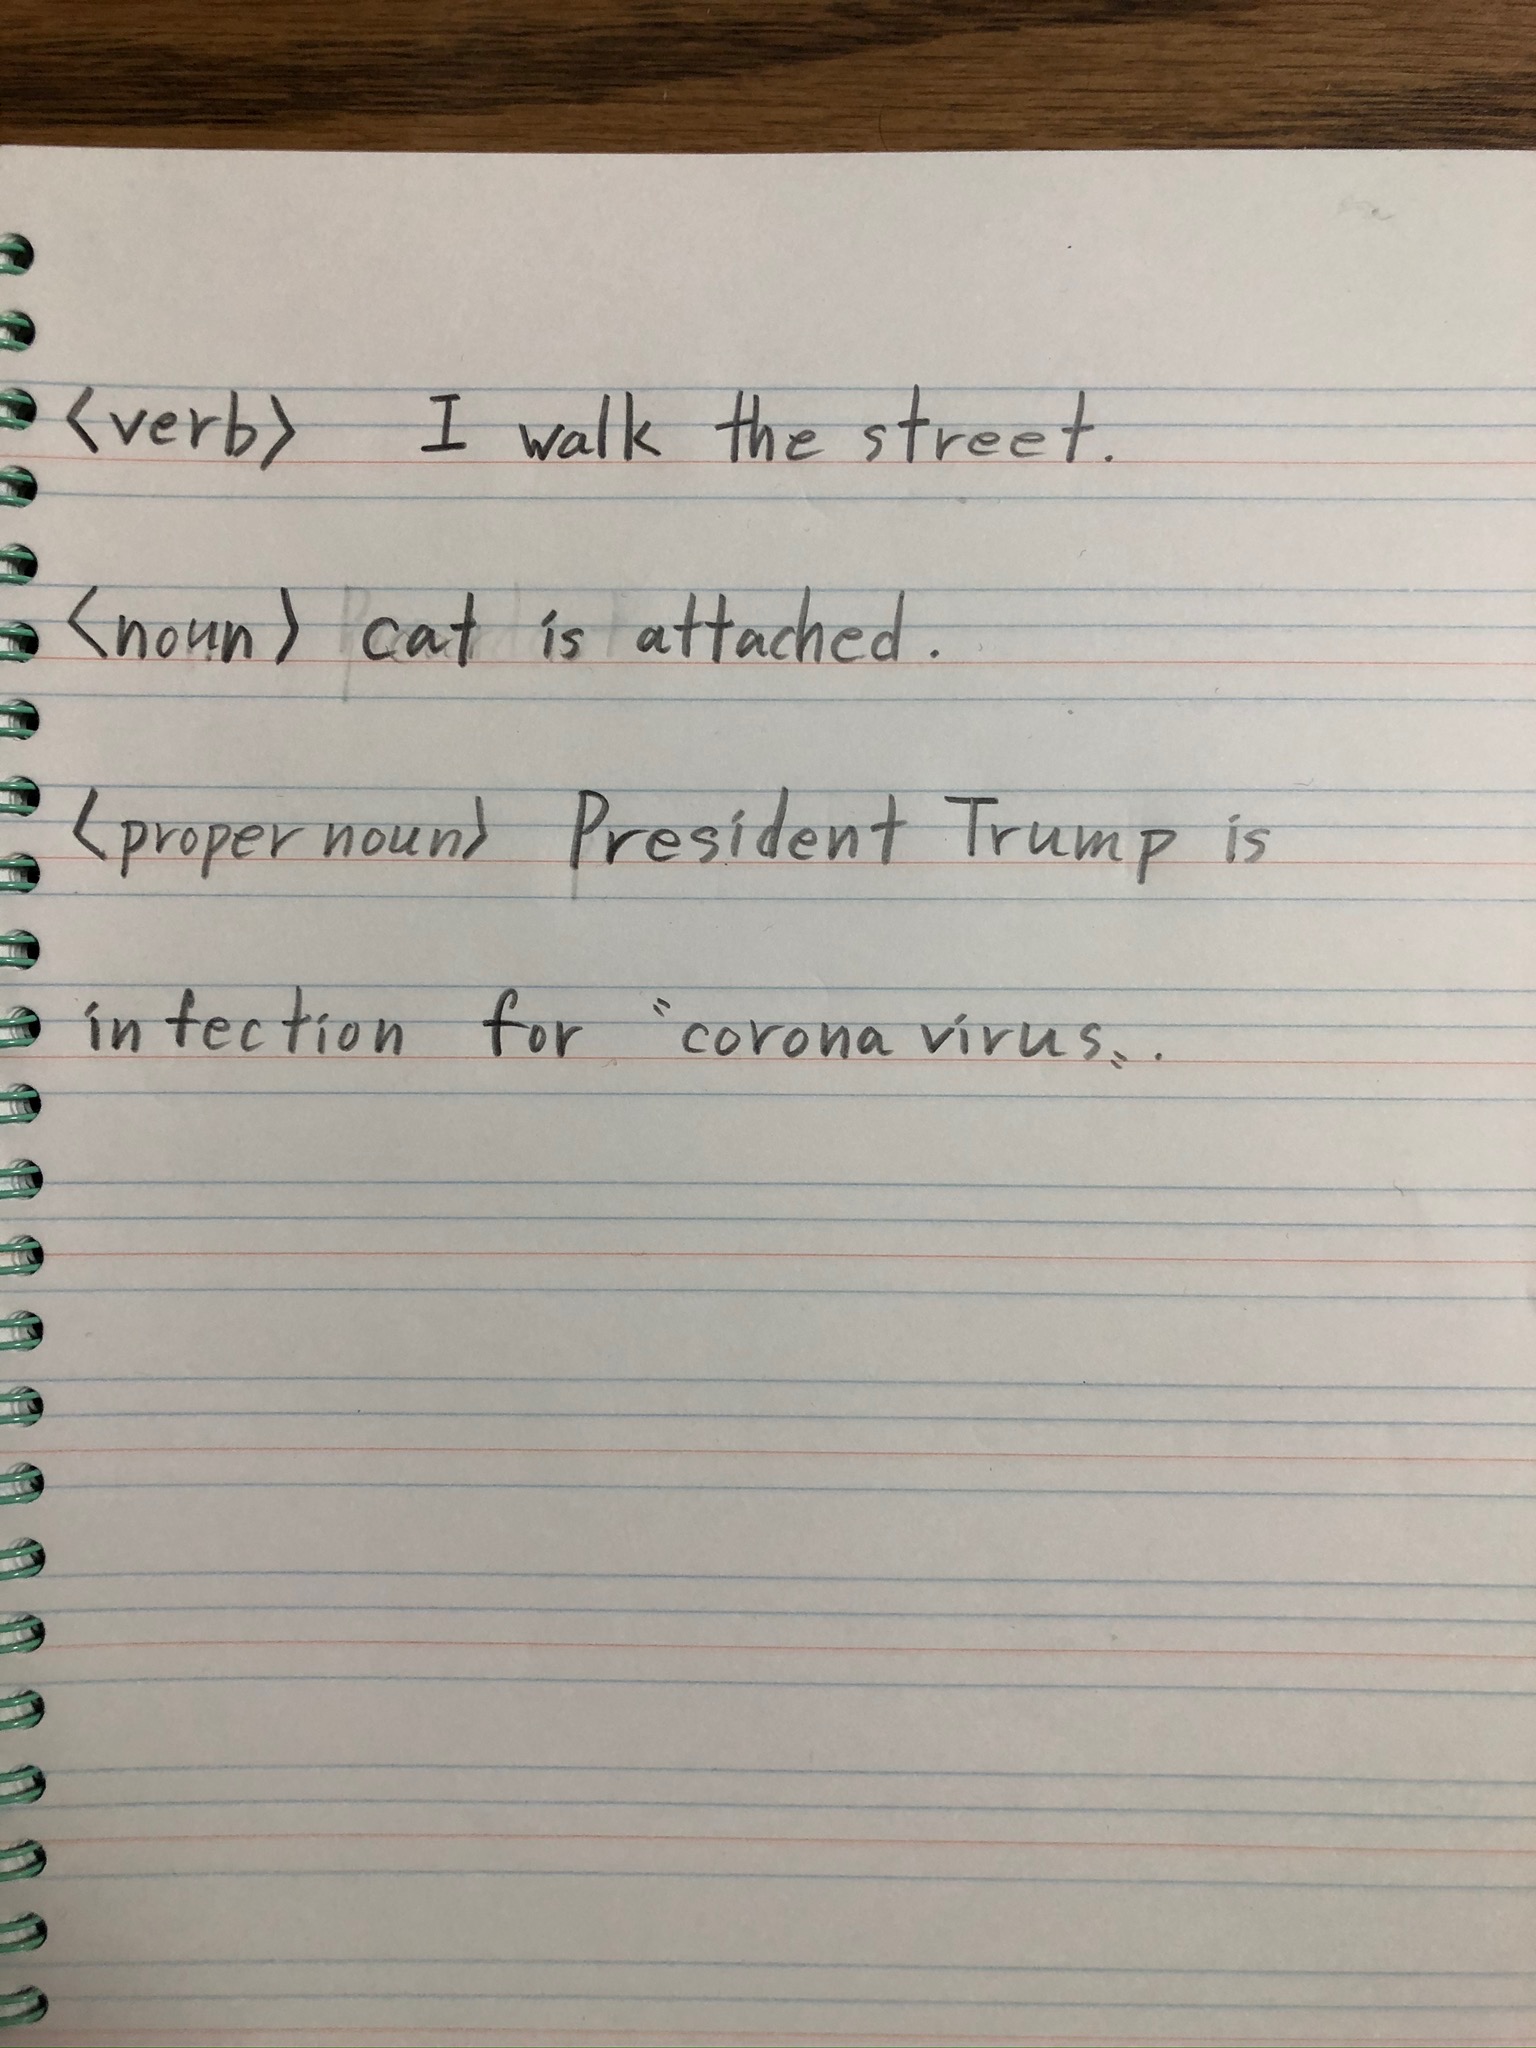 <verb> I walk the street.
<noun> cat is attached.
<proper noun> President Trump is
infection for 〝corona virus〟.